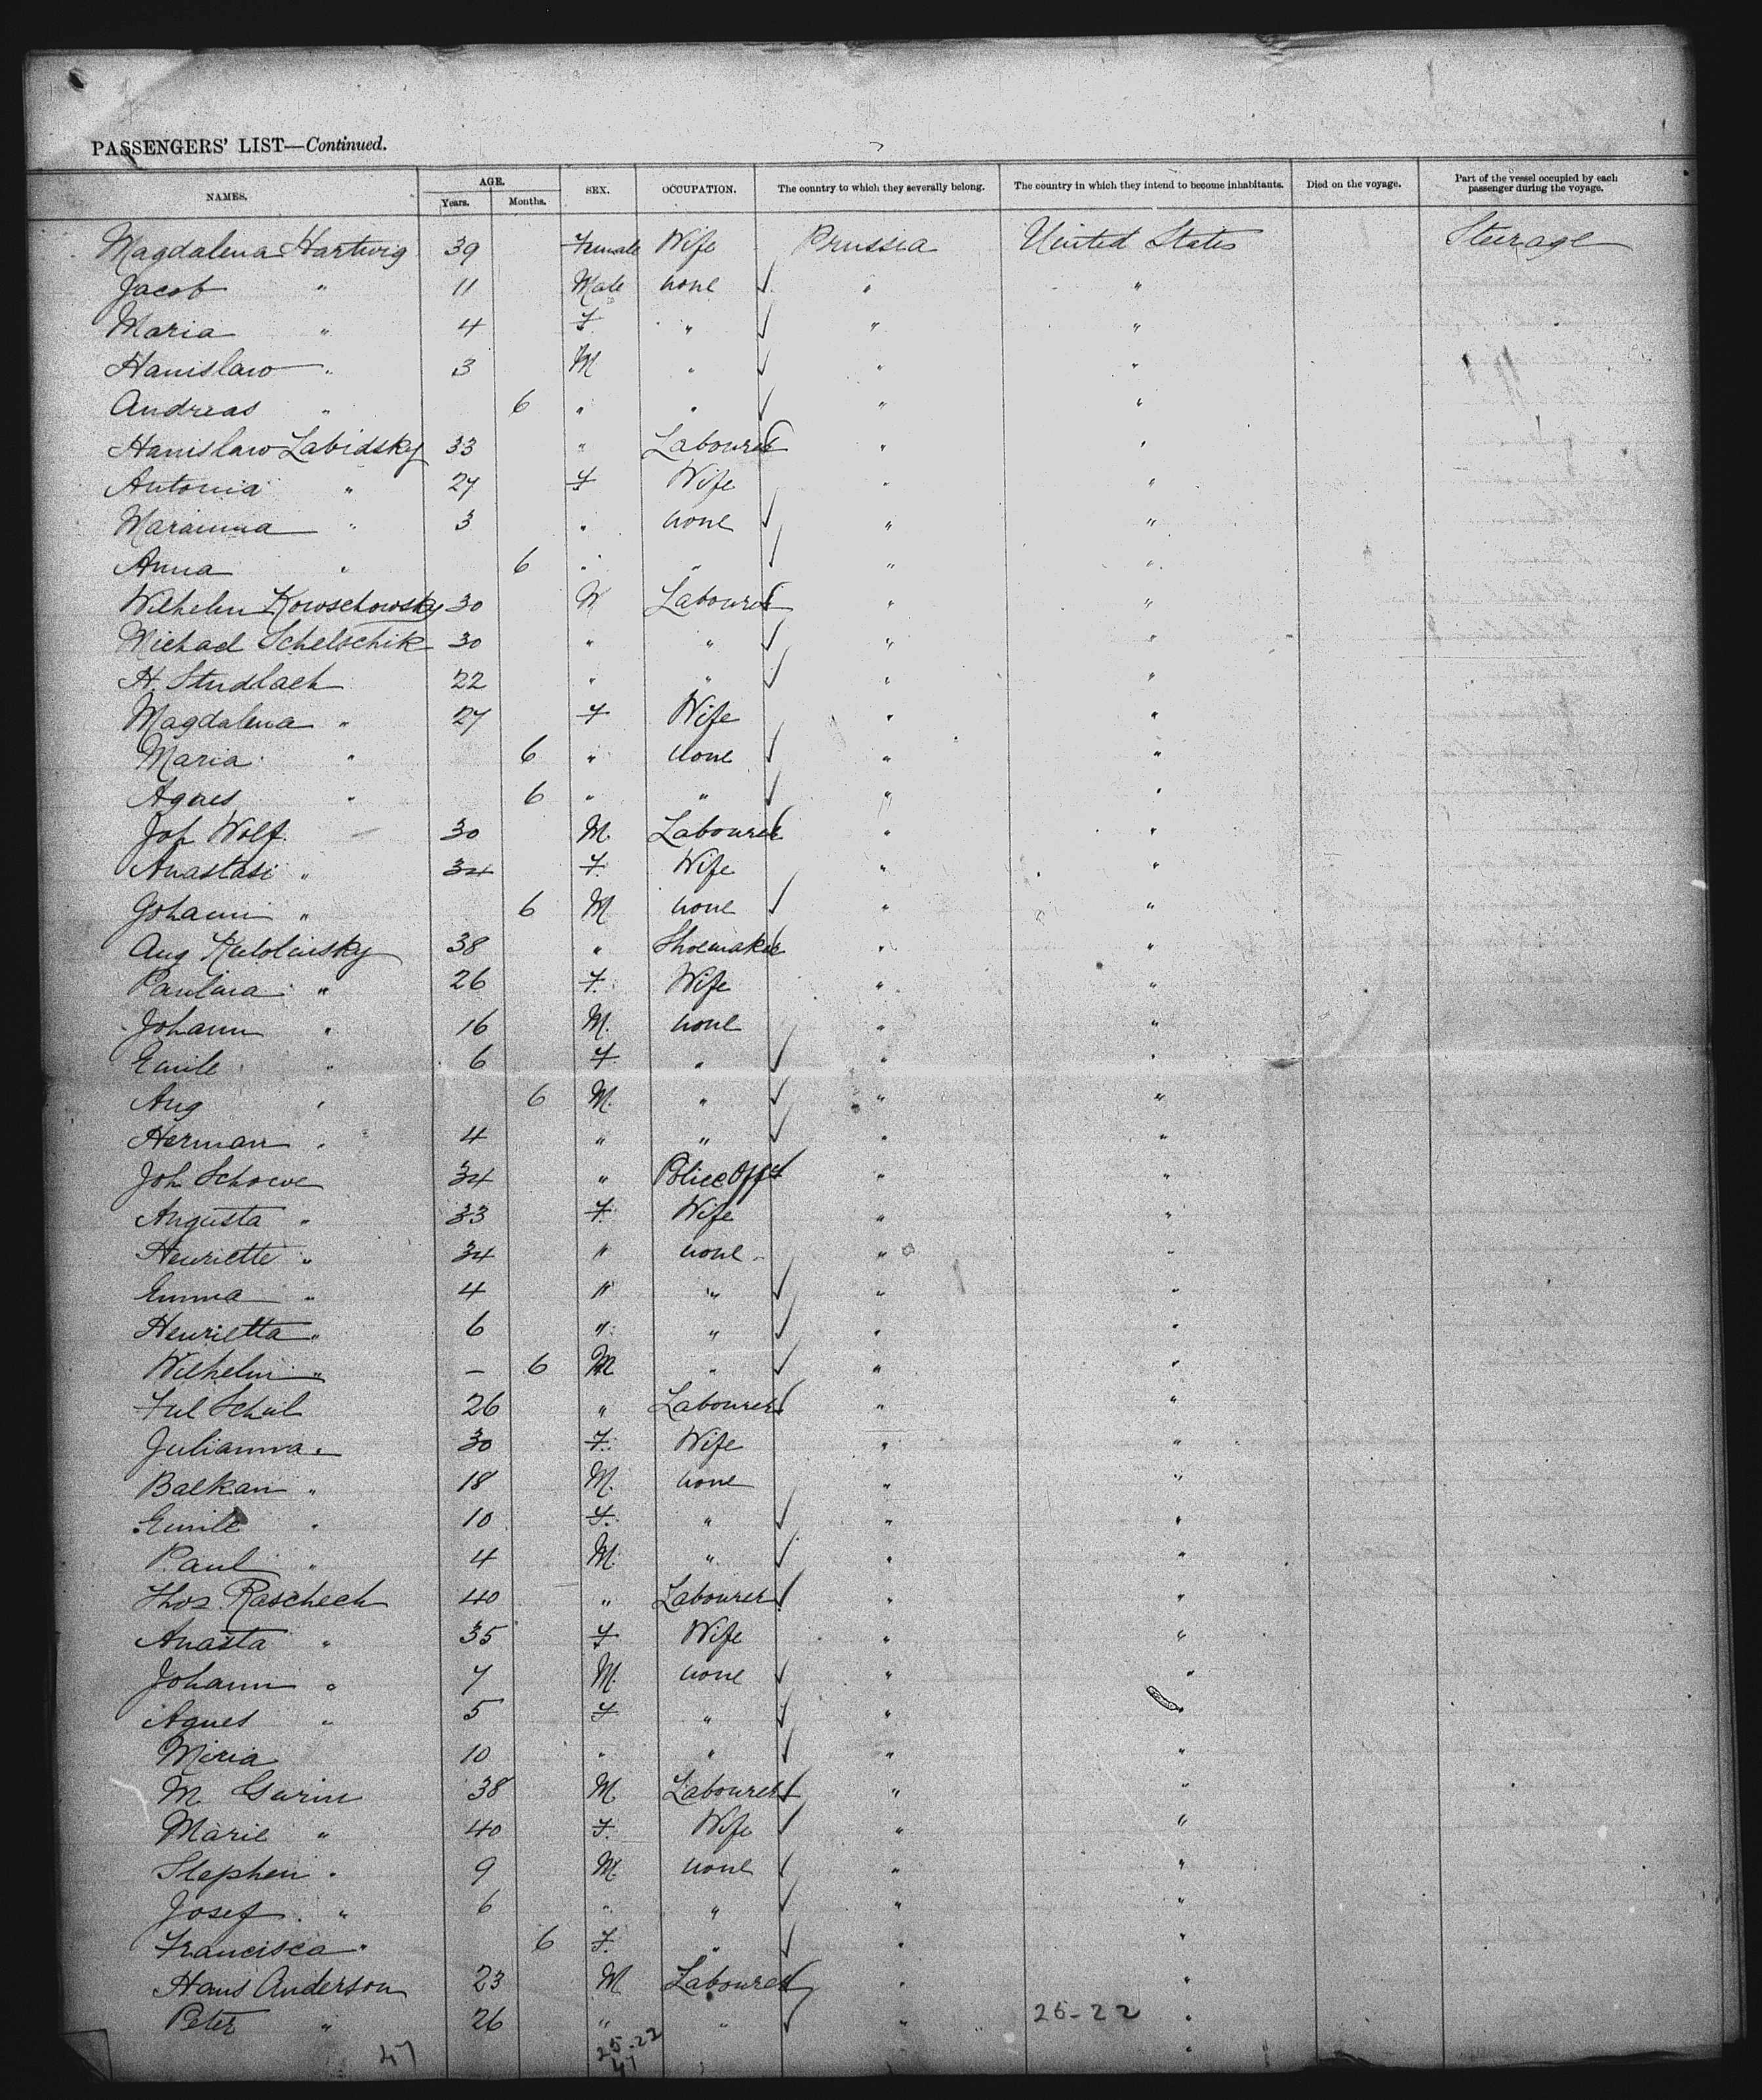 PASSENGERS' LIST—Continued.
NAMES. AGE. Years. Months. SEX. OCCUPATION. The country to which they severally belong. The country in which they intend to become inhabitants. Died on the voyage. Part of the vessel occupied by each passenger during the voyage.
Magdalena Hartwig 39 Female Wife Prussia United States Steerage
Jacob " 11 Male none ✓ " "
Maria " 4 F. " ✓ " "
Stanislaw " 3 M " ✓ " "
Andreas " 6 " " ✓ " "
Stanislaw Labidsky 33 " Labourer ✓ " "
Antonia " 27 F Wife " "
Marianna " 3 " none ✓ " "
Anna " 6 " " ✓ " "
Wilhelm Kowschowsky 30 M Labourer ✓ " "
Michael Schelschik 30 " " ✓ " "
H. Studlach 22 " " ✓ " "
Magdalena " 27 F Wife " "
Maria " 6 " none ✓ " "
Agnes " 6 " " ✓ " "
Joh Wolf 30 M. Labourer ✓ " "
Anastasi " 34 F. Wife " "
Johann " 6 M none ✓ " "
Aug 38 " Shoemaker ✓ " "
Paulina " 26 F. Wife " "
Johann " 16 M. none " "
Emile " 6 F " ✓ " "
Aug " 6 M. " ✓ " "
Herman " 4 " " ✓ " "
Joh Schowe 34 " Police Offr ✓ " "
Augusta " 33 F. Wife " "
Henriette " 34 " none " "
Emma " 4 " " ✓ " "
Henrietta " 6 " " ✓ " "
Wilhelm " – 6 M " ✓ " "
Jul Schul 26 " Labourer ✓ " "
Julianna " 30 F. Wife " "
Balkan " 18 M. none " "
Emile " 10 F. " ✓ " "
Paul " 4 M. " ✓ " "
Thos Raschech 40 " Labourer ✓ " "
Anasta " 35 F Wife " "
Johann " 7 M. none ✓ " "
Agnes " 5 F " ✓ " "
Miria 10 " " ✓ " "
M. Gurin 38 M. Labourer ✓ " "
Marie " 40 F. Wife ✓ " "
Stephen " 9 M none ✓ " "
Josef " 6 " " ✓ " "
Francisca " 6 F. " ✓ " "
Hans Anderson 23 M Labourer ✓ " "
Peter " 26 " " ✓ " 25-22 "
47 25-22
47